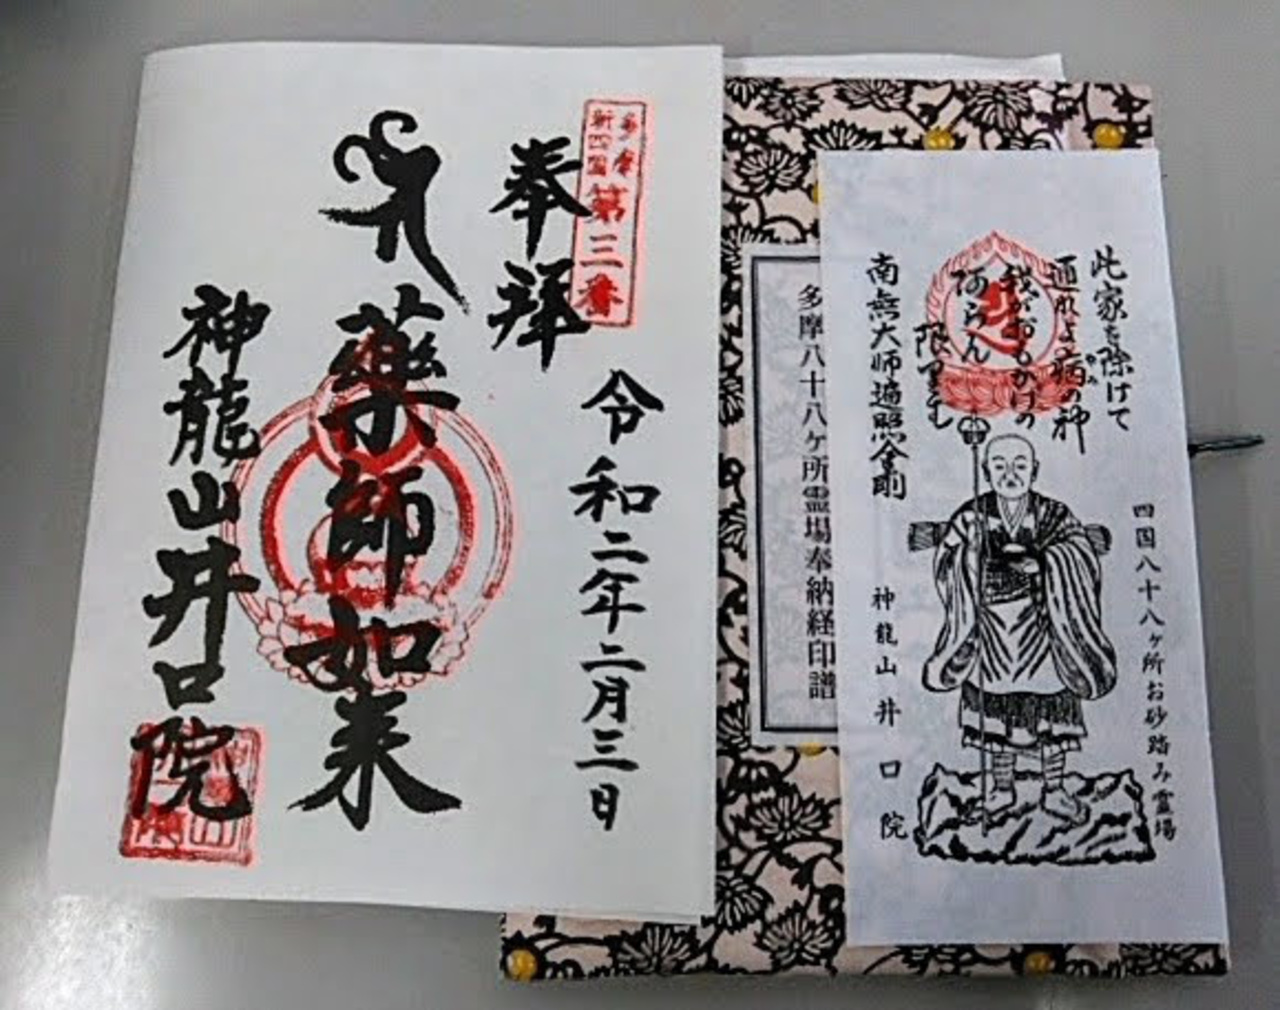 多摩
新四国
第三番
奉拝
令和二年二月三日
薬師如来
神龍山井口院
多摩八十八ヶ所霊場奉納経印譜
此家を除けて
通れよ病の神
我がおもかげの
阿らん
限りは
南無大師遍照金剛
四国八十八ヶ所お砂踏み霊場
神龍山井口院